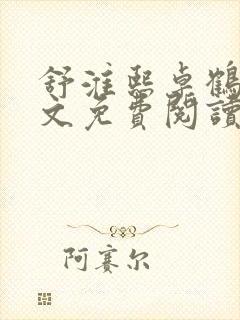 舒淮熙卓鶴
文免費閱讀
阿賽尔